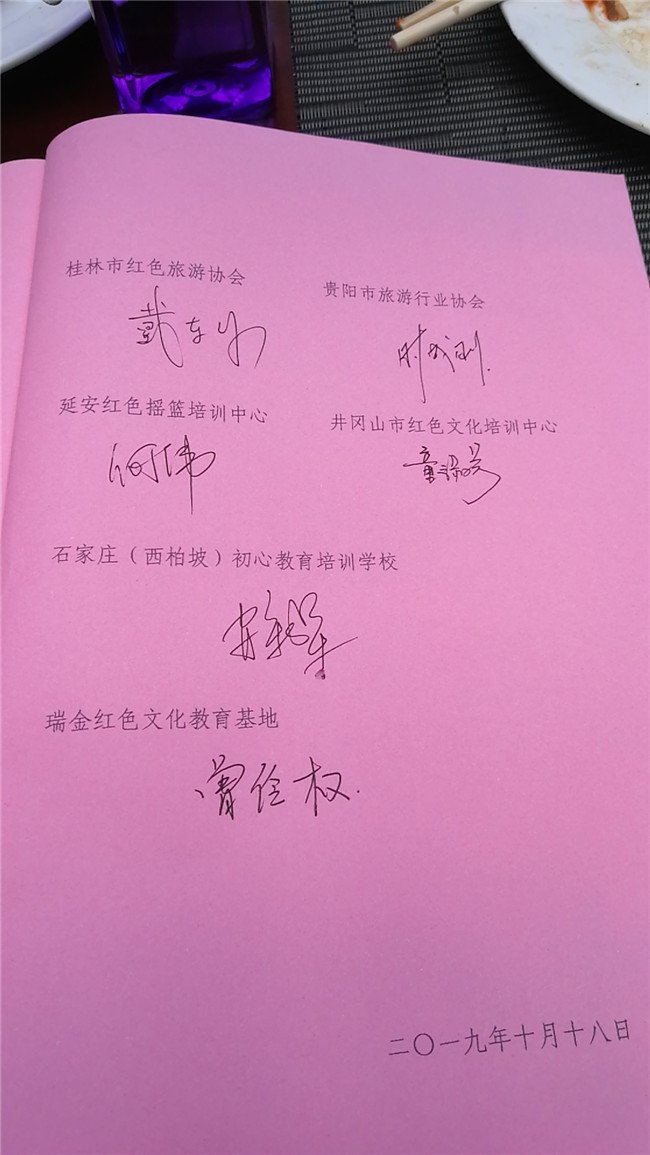 桂林市红色旅游协会
贵阳市旅游行业协会
戴东
延安红色摇篮培训中心
井冈山市红色文化培训中心
何伟
童
石家庄（西柏坡）初心教育培训学校
瑞金红色文化教育基地
曾 权
二〇一九年十月十八日